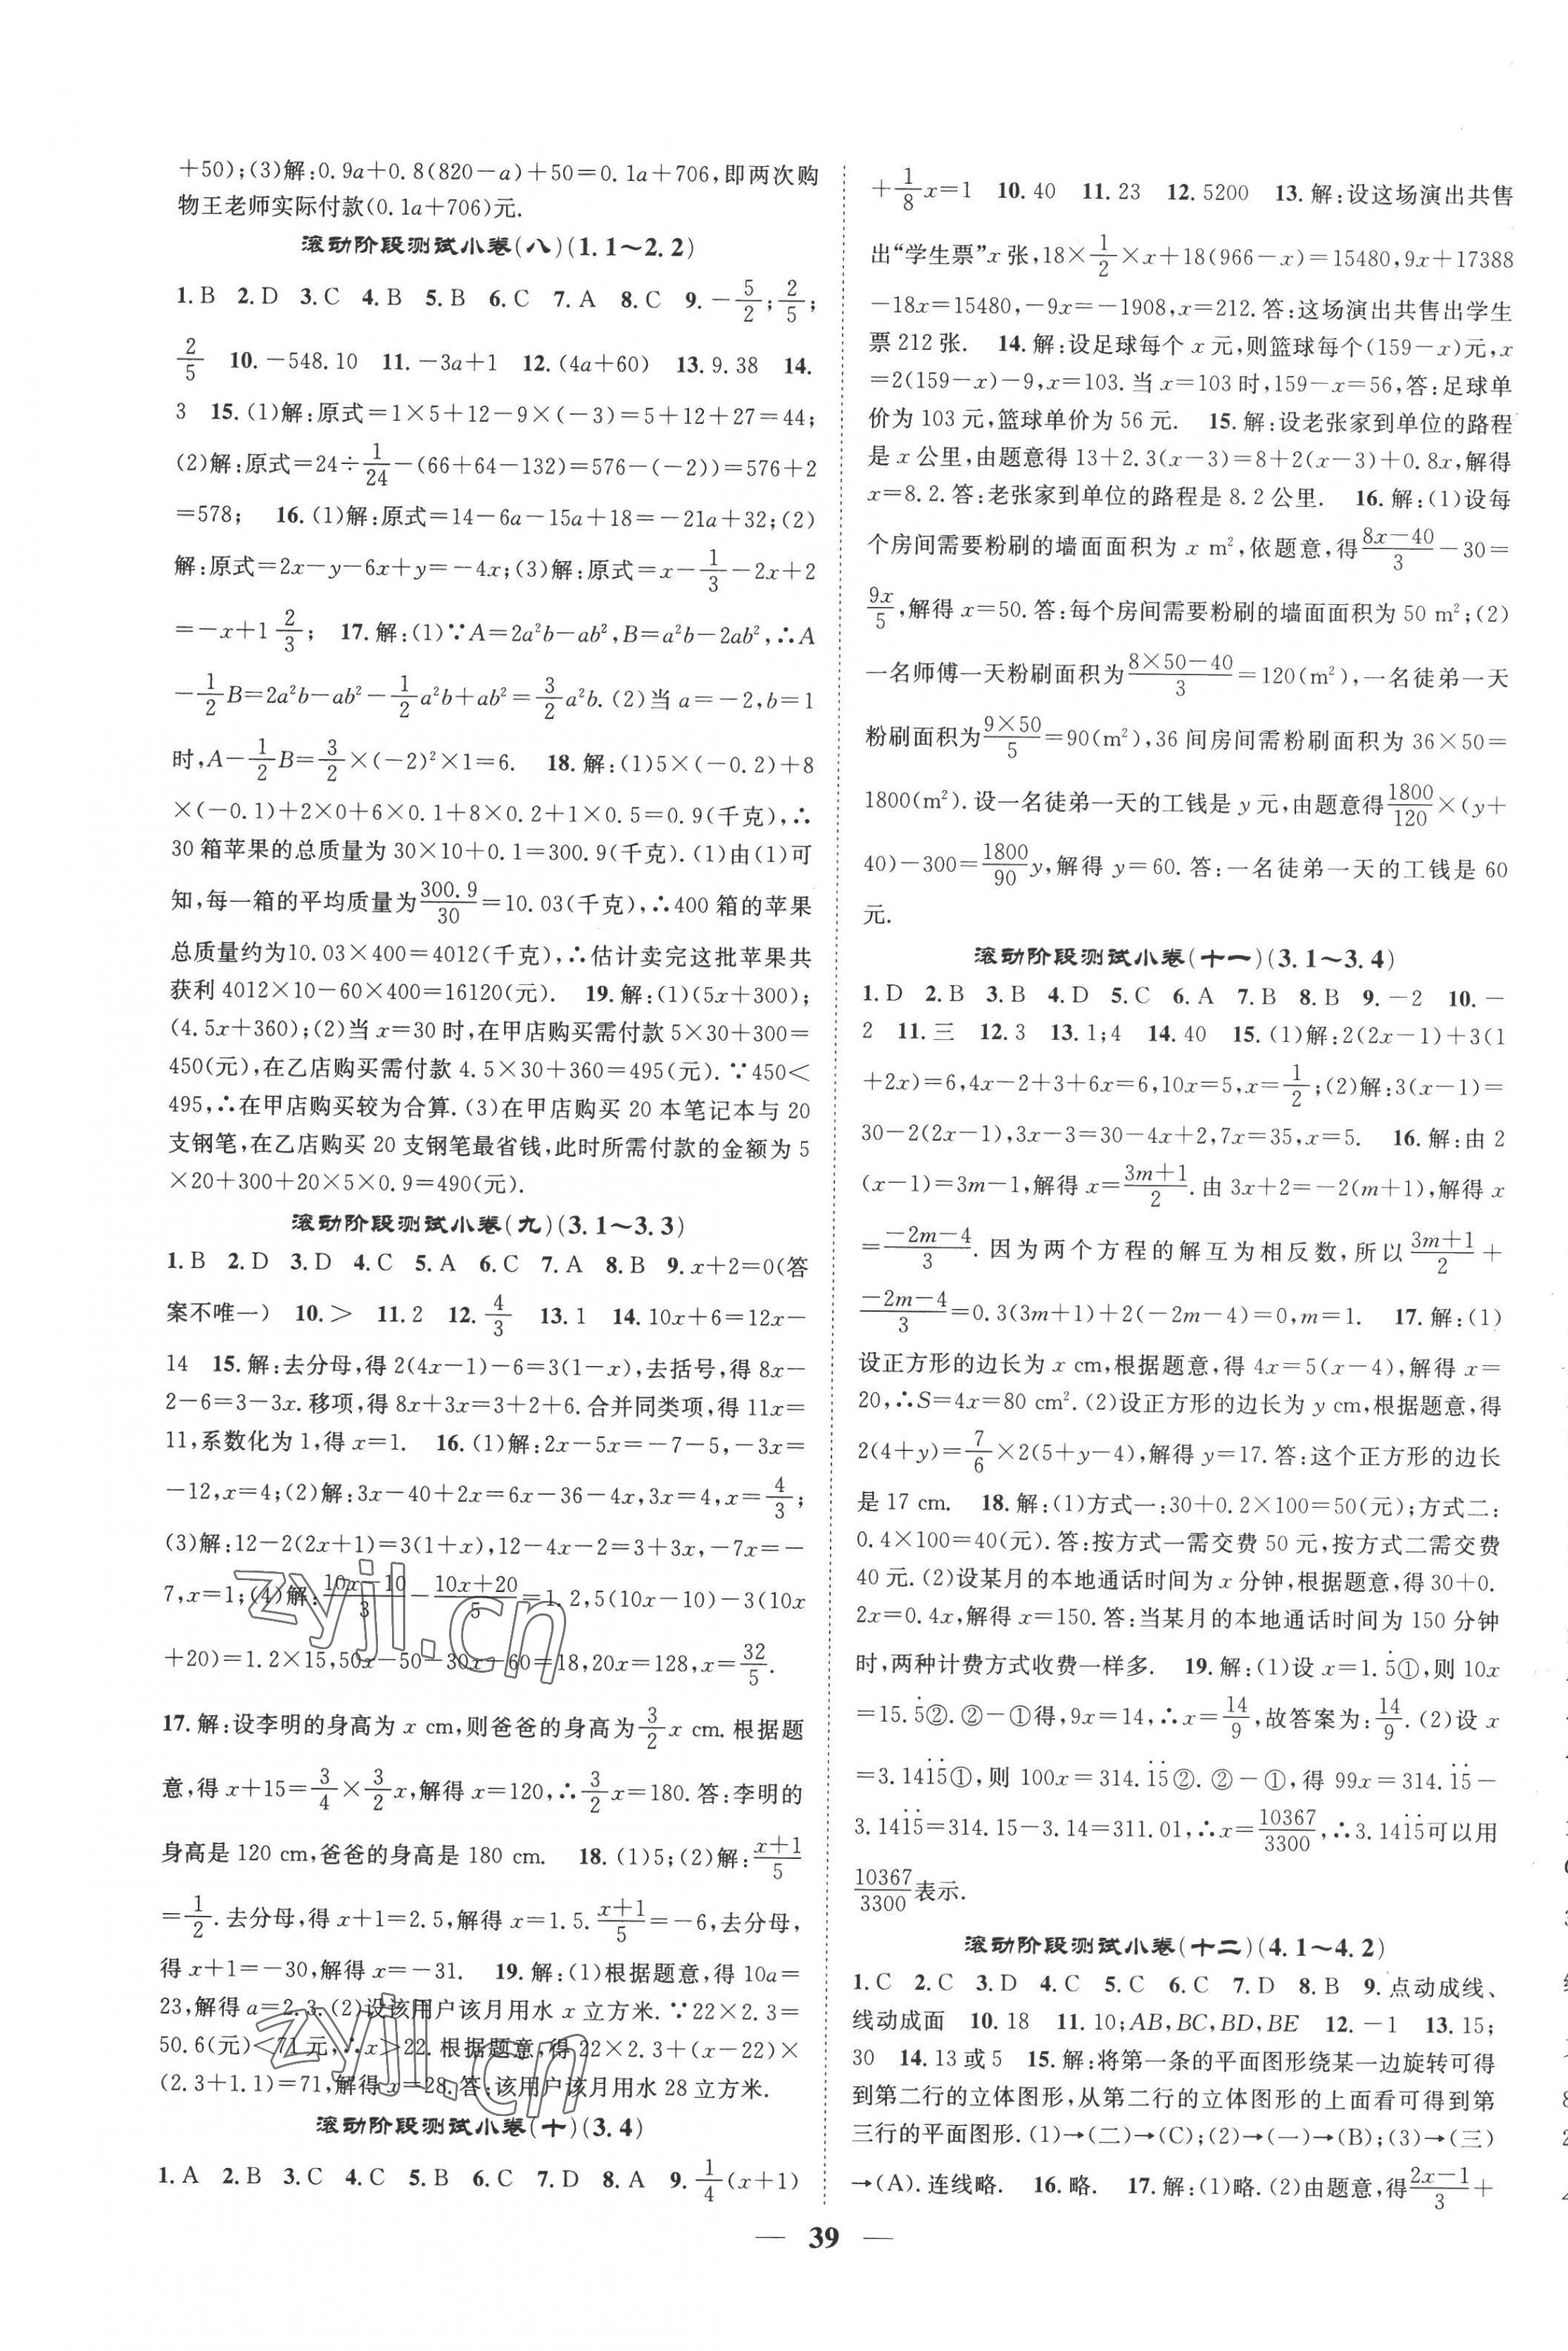 +50);(3)解:0.9a+0.8(820-a)+50=0.1a+706,即两次购
物王老师实际付款(0.1a+706)元.
滚动阶段测试小卷(八)(1.1~2.2)
1.B 2.D 3.C 4.B 5.B 6.C 7.A 8.C 9.-5/2;2/5;
2/5 10.-548.10 11.-3a+1 12.(4a+60) 13.9.38 14.
3 15.(1)解:原式=1×5+12-9×(-3)=5+12+27=44;
(2)解:原式=24÷1/24-(66+64-132)=576-(-2))=576+2
=578; 16.(1)解:原式=14-6a-15a+18=-21a+32;(2)
解:原式=2x-y-6x+y=-4x;(3)解:原式=x-1/3-2x+2
=-x+1 2/3; 17.解:(1)∵A=2a²b-ab²,B=a²b-2ab²,∴A
-1/2B=2a²b-ab²-1/2a²b+ab²=3/2a²b.(2)当a=-2,b=1
时,A-1/2B=3/2×(-2)²×1=6. 18.解:(1)5×(-0.2)+8
×(-0.1)+2×0+6×0.1+8×0.2+1×0.5=0.9(千克),∴
30箱苹果的总质量为30×10+0.1=300.9(千克).(1)由(1)可
知,每一箱的平均质量为300.9/30=10.03(千克),∴400箱的苹果
总质量约为10.03×400=4012(千克),∴估计卖完这批苹果共
获利4012×10-60×400=16120(元). 19.解:(1)(5x+300);
(4.5x+360);(2)当x=30时,在甲店购买需付款5×30+300=
450(元),在乙店购买需付款4.5×30+360=495(元).∵450<
495,∴在甲店购买较为合算.(3)在甲店购买20本笔记本与20
支钢笔,在乙店购买20支钢笔最省钱,此时所需付款的金额为5
×20+300+20×5×0.9=490(元).
滚动阶段测试小卷(九)(3.1~3.3)
1.B 2.D 3.D 4.C 5.A 6.C 7.A 8.B 9.x+2=0(答
案不唯一) 10.> 11.2 12.4/3 13.1 14.10x+6=12x-
14 15.解:去分母,得2(4x-1)-6=3(1-x),去括号,得8x-
2-6=3-3x.移项,得8x+3x=3+2+6.合并同类项,得11x=
11,系数化为1,得x=1. 16.(1)解:2x-5x=-7-5,-3x=
-12,x=4;(2)解:3x-40+2x=6x-36-4x,3x=4,x=4/3;
(3)解:12-2(2x+1)=3(1+x),12-4x-2=3+3x,-7x=-
7,x=1;(4)解:(10x-10)/3-(10x+20)/5=1.2,5(10x-10)-3(10x
+20)=1.2×15,50x-50-30x-60=18,20x=128,x=32/5.
17.解:设李明的身高为x cm,则爸爸的身高为3/2x cm.根据题
意,得x+15=3/4×3/2x,解得x=120,∴3/2x=180.答:李明的
身高是120 cm,爸爸的身高是180 cm. 18.(1)5;(2)解:(x+1)/5
=1/2.去分母,得x+1=2.5,解得x=1.5.(x+1)/5=-6,去分母,
得x+1=-30,解得x=-31. 19.解:(1)根据题意,得10a=
23,解得a=2.3.(2)设该用户该月用水x立方米.∵22×2.3=
50.6(元)<71元,∴x>22.根据题意,得22×2.3+(x-22)×
(2.3+1.1)=71,解得x=28.答:该用户该月用水28立方米.
滚动阶段测试小卷(十)(3.4)
1.A 2.B 3.C 4.C 5.B 6.C 7.D 8.A 9.1/4(x+1)
+1/8x=1 10.40 11.23 12.5200 13.解:设这场演出共售
出“学生票”x张,18×1/2×x+18(966-x)=15480,9x+17388
-18x=15480,-9x=-1908,x=212.答:这场演出共售出学生
票212张. 14.解:设足球每个x元,则篮球每个(159-x)元,x
=2(159-x)-9,x=103.当x=103时,159-x=56,答:足球单
价为103元,篮球单价为56元. 15.解:设老张家到单位的路程
是x公里,由题意得13+2.3(x-3)=8+2(x-3)+0.8x,解得
x=8.2.答:老张家到单位的路程是8.2公里. 16.解:(1)设每
个房间需要粉刷的墙面面积为x m²,依题意,得(8x-40)/3-30=
9x/5,解得x=50.答:每个房间需要粉刷的墙面面积为50 m²;(2)
一名师傅一天粉刷面积为(8×50-40)/3=120(m²),一名徒弟一天
粉刷面积为(9×50)/5=90(m²),36间房间需粉刷面积为36×50=
1800(m²).设一名徒弟一天的工钱是y元,由题意得1800/120×(y+
40)-300=1800/90y,解得y=60.答:一名徒弟一天的工钱是60
元.
滚动阶段测试小卷(十一)(3.1~3.4)
1.D 2.B 3.B 4.D 5.C 6.A 7.B 8.B 9.-2 10.-
2 11.三 12.3 13.1;4 14.40 15.(1)解:2(2x-1)+3(1
+2x)=6,4x-2+3+6x=6,10x=5,x=1/2;(2)解:3(x-1)=
30-2(2x-1),3x-3=30-4x+2,7x=35,x=5. 16.解:由2
(x-1)=3m-1,解得x=(3m+1)/2.由3x+2=-2(m+1),解得x
=(-2m-4)/3.因为两个方程的解互为相反数,所以(3m+1)/2+
(-2m-4)/3=0.3(3m+1)+2(-2m-4)=0,m=1. 17.解:(1)
设正方形的边长为x cm,根据题意,得4x=5(x-4),解得x=
20,∴S=4x=80 cm².(2)设正方形的边长为y cm,根据题意,得
2(4+y)=7/6×2(5+y-4),解得y=17.答:这个正方形的边长
是17 cm. 18.解:(1)方式一:30+0.2×100=50(元);方式二:
0.4×100=40(元).答:按方式一需交费50元,按方式二需交费
40元.(2)设某月的本地通话时间为x分钟,根据题意,得30+0.
2x=0.4x,解得x=150.答:当某月的本地通话时间为150分钟
时,两种计费方式收费一样多. 19.解:(1)设x=1.5̇①,则10x
=15.5̇②.②-①得,9x=14,∴x=14/9,故答案为:14/9.(2)设x
=3.141̇5̇①,则100x=314.1̇5̇②.②-①,得99x=314.1̇5̇-
3.141̇5̇=314.15-3.14=311.01,∴x=10367/3300,∴3.141̇5̇可以用
10367/3300表示.
滚动阶段测试小卷(十二)(4.1~4.2)
1.C 2.C 3.D 4.C 5.C 6.C 7.D 8.B 9.点动成线、
线动成面 10.18 11.10;AB,BC,BD,BE 12.-1 13.15;
30 14.13或5 15.解:将第一条的平面图形绕某一边旋转可得
到第二行的立体图形,从第二行的立体图形的上面看可得到第
三行的平面图形.(1)→(二)→(C);(2)→(一)→(B);(3)→(三)
→(A).连线略. 16.略. 17.解:(1)略.(2)由题意,得(2x-1)/3+
— 39 —
zyjl.cn
zyjl.cn